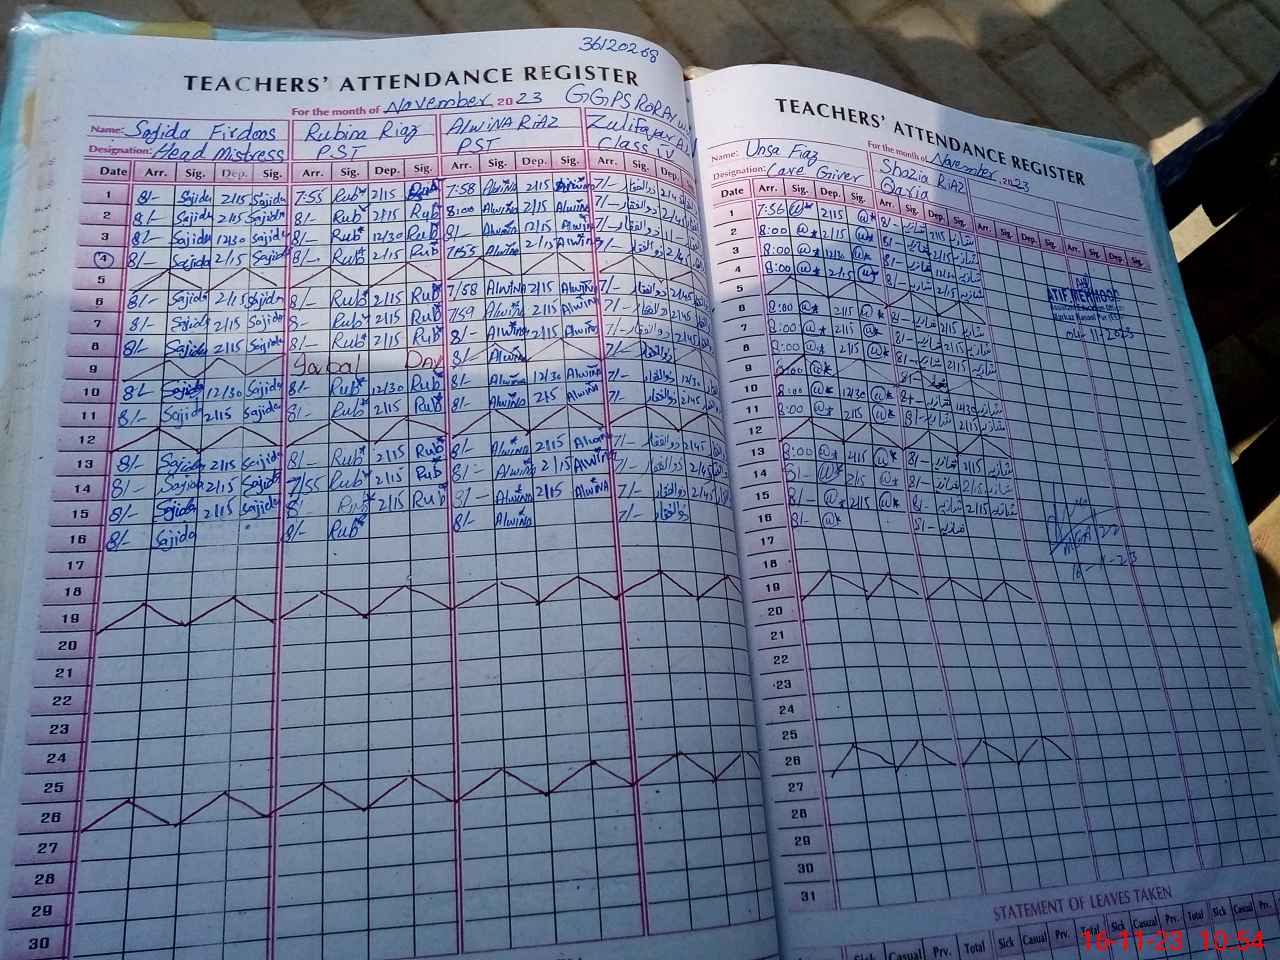 36120268
TEACHERS' ATTENDANCE REGISTER
For the month of November 2023
Name: Sajida Firdous Rubina Riaz ALWiNA RiAZ
Designation: Head Mistress PST PST Class IV
Date Arr. Sig. Dep. Sig. Arr. Sig. Dep. Sig. Arr. Sig. Dep. Sig. Arr. Sig. Dep.
1 8/- Sajida 2/15 Sajida 7:55 Rub 2/15 Rub 7:58 Alwina 2/15 Alwina 7/- ذوالفقار 2/45
2 8/- Sajida 2/15 Sajida 8/- Rub 2/15 Rub 8:00 Alwina 2/15 Alwina 7/- ذوالفقار 2/45
3 8/- Sajida 12/30 Sajida 8/- Rub 12/30 Rub 8/- Alwina 12/15 Alwina 7/- ذوالفقار
4 8/- Sajida 2/15 Sajida 8/- Rub 2/15 Rub 7/55 Alwina 2/15 Alwina 7/- ذوالفقار 2/45
5
6 8/- Sajida 2/15 Sajida 8/- Rub 2/15 Rub 7/58 Alwina 2/15 Alwina 7/- ذوالفقار 2/45
7 8/- Sajida 2/15 Sajida 8- Rub 2/15 Rub 7/59 Alwina 2/15 Alwina 7/- ذوالفقار 2/45
8 8/- Sajida 2/15 Sajida 8/- Rub 2/15 Rub 8/- Alwina 2/15 Alwina 7/- ذوالفقار 2/45
9 Iqbal Day 8/- Alwina 7/- ذوالفقار
10 8/- Sajida 12/30 Sajida 8/- Rub 12/30 Rub 8/- Alwina 12/30 Alwina 7/- ذوالفقار 12/30
11 8/- Sajida 2/15 Sajida 8/- Rub 2/15 Rub 8/- Alwina 2/5 Alwina 7/- ذوالفقار 2/45
12
13 8/- Sajida 2/15 Sajida 8/- Rub 2/15 Rub 8/- Alwina 2/15 Alwina 7/- ذوالفقار 2/45
14 8/- Sajida 2/15 Sajida 7/55 Rub 2/15 Rub 8/- Alwina 2/15 Alwina 7/- ذوالفقار 2/45
15 8/- Sajida 2/15 Sajida 8/- Rub 2/15 Rub 8/- Alwina 2/15 Alwina 7/- ذوالفقار 2/45
16 8/- Sajida 8/- Rub 8/- Alwina 7/- ذوالفقار
17
18
19
20
21
22
23
24
25
26
27
28
29
30
TEACHERS' ATTENDANCE REGISTER
For the month of November 2023
Name: Unsa Fiaz Shazia RiAZ
Designation: Care Giver Qaria
Date Arr. Sig. Dep. Sig. Arr. Sig. Dep. Sig. Arr. Sig. Dep. Sig. Arr. Sig. Dep. Sig.
1 7:56 @* 2/15 @* 8/- شازیہ 2/15 شازیہ
2 8:00 @* 2/15 @* 8/- شازیہ 2/15 شازیہ
3 8:00 @* @* 8/- شازیہ شازیہ
4 8:00 @* 2/15 @* 8/- شازیہ 2/15 شازیہ
5
6 8:00 @* 2/15 @* 8/- شازیہ 2/15 شازیہ
7 8:00 @* 2/15 @* 8/- شازیہ 2/15 شازیہ
8 8:00 @* 2/15 @* 8/- شازیہ 2/15 شازیہ
9 8:00 @* 8/- شازیہ
10 8:00 @* 12/30 @* 8/- شازیہ 12/30 شازیہ
11 8:00 @* 2/15 @* 8/- شازیہ 2/15 شازیہ
12
13 8:00 @* 2/15 @* 8/- شازیہ 2/15 شازیہ
14 8/- @* 2/15 @* 8/- شازیہ 2/15 شازیہ
15 8/- @* 2/15 @* 8/- شازیہ 2/15 شازیہ
16 8/- @* 8/- شازیہ
17
18
19
20
21
22
23
24
25
26
27
28
29
30
31
ATIF MEHMOOD
STATEMENT OF LEAVES TAKEN
Sick Casual Prv. Total Sick Casual Prv. Total Sick Casual Prv. Total Sick Casual Prv.
16-11-23 10:54